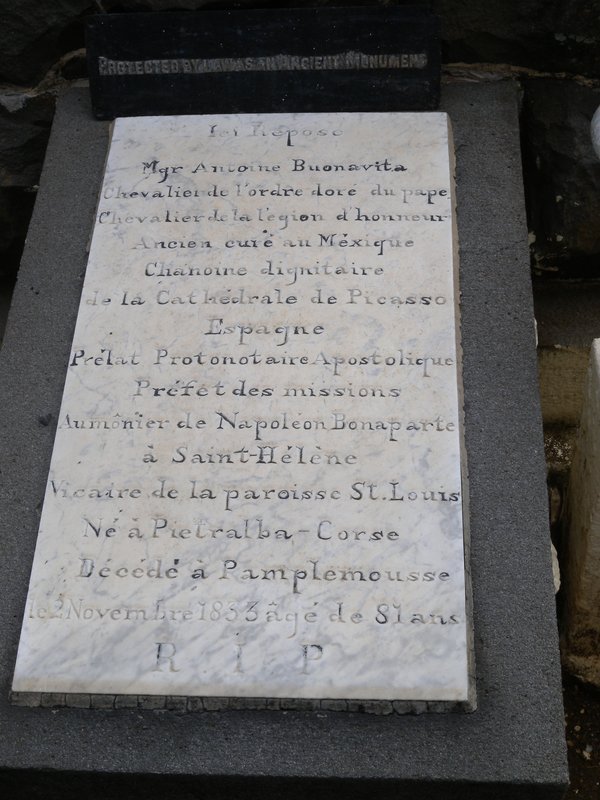 PROTECTED BY LAW AS AN ANCIENT MONUMENT
Ici Repose
Mgr Antoine Buonavita
Chevalier de l'ordre doré du pape
Chevalier de la légion d'honneur
Ancien curé au Méxique
Chanoine dignitaire
de la Cathédrale de Picasso
Espagne
Prélat Protonotaire Apostolique
Préfet des missions
Aumônier de Napoléon Bonaparte
à Saint-Hélène
Vicaire de la paroisse St. Louis
Né à Pietralba-Corse
Décédé à Pamplemousse
le 2 Novembre 1833 âgé de 81 ans
R I P